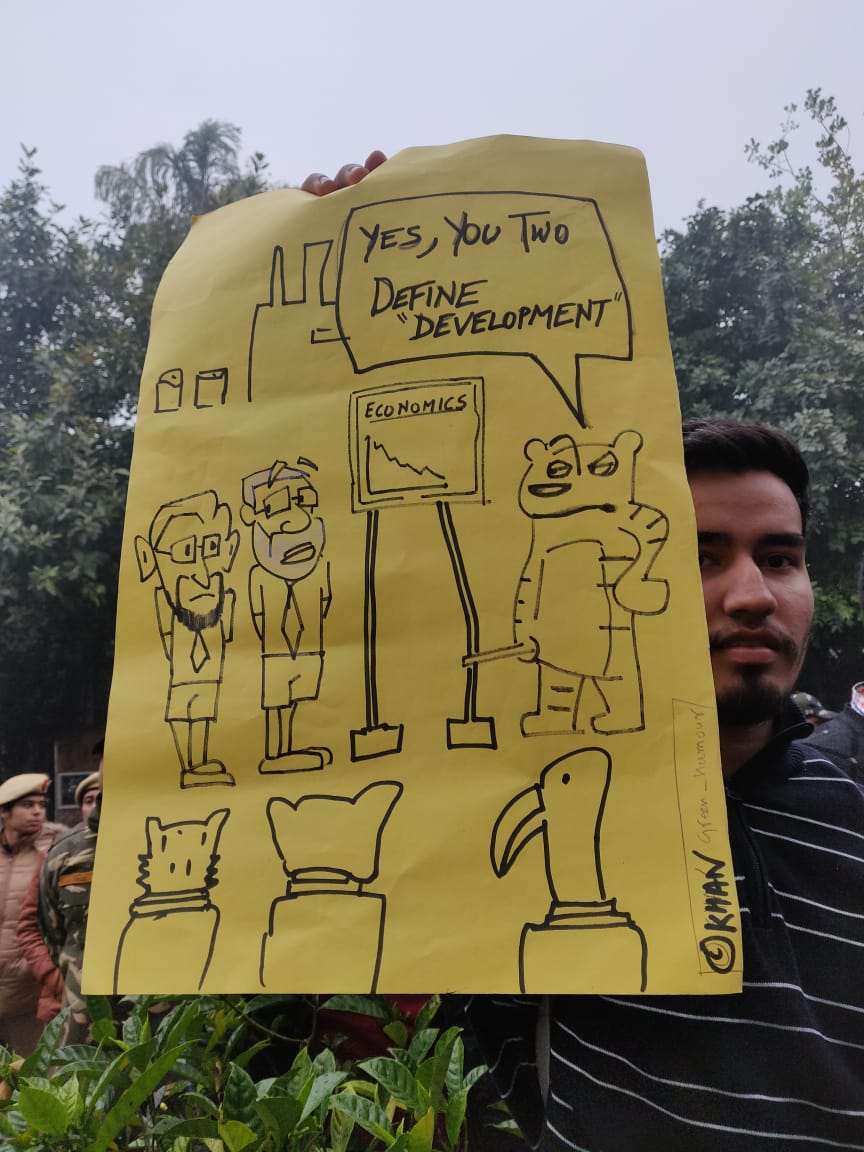 YES, YOU TWO
DEFINE
"DEVELOPMENT"
ECONOMICS
© KHAN
Green_humour